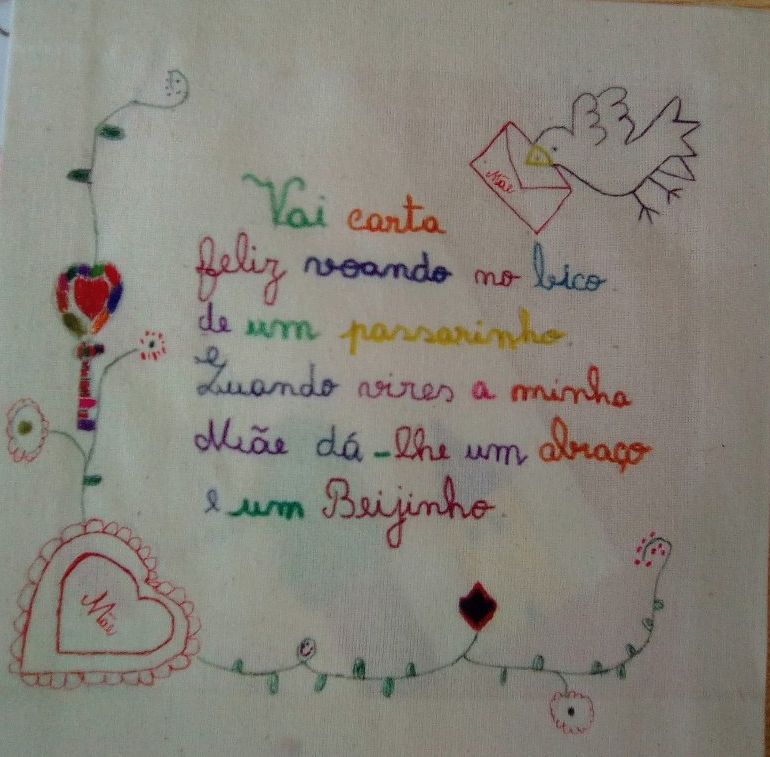 Mãe
Vai carta
feliz voando no bico
de um passarinho.
e
Quando vires a minha
Mãe dá-lhe um abraço
e um Beijinho.
Mãe